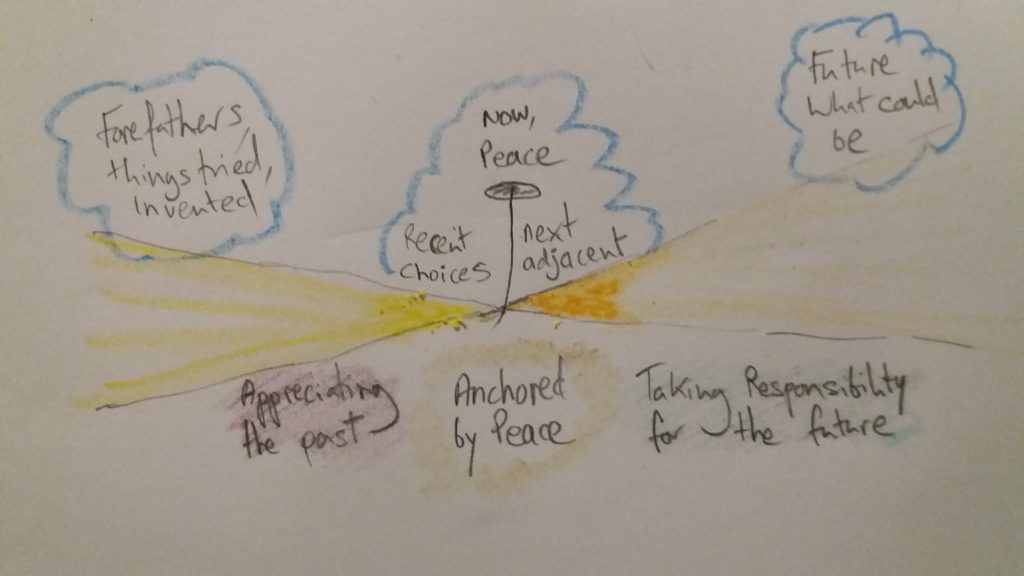 Forefathers,
things tried,
invented
Now,
Peace
Recent
choices
next
adjacent
Future
What could
be
Appreciating
the past
Anchored
by Peace
Taking Responsibility
for the future